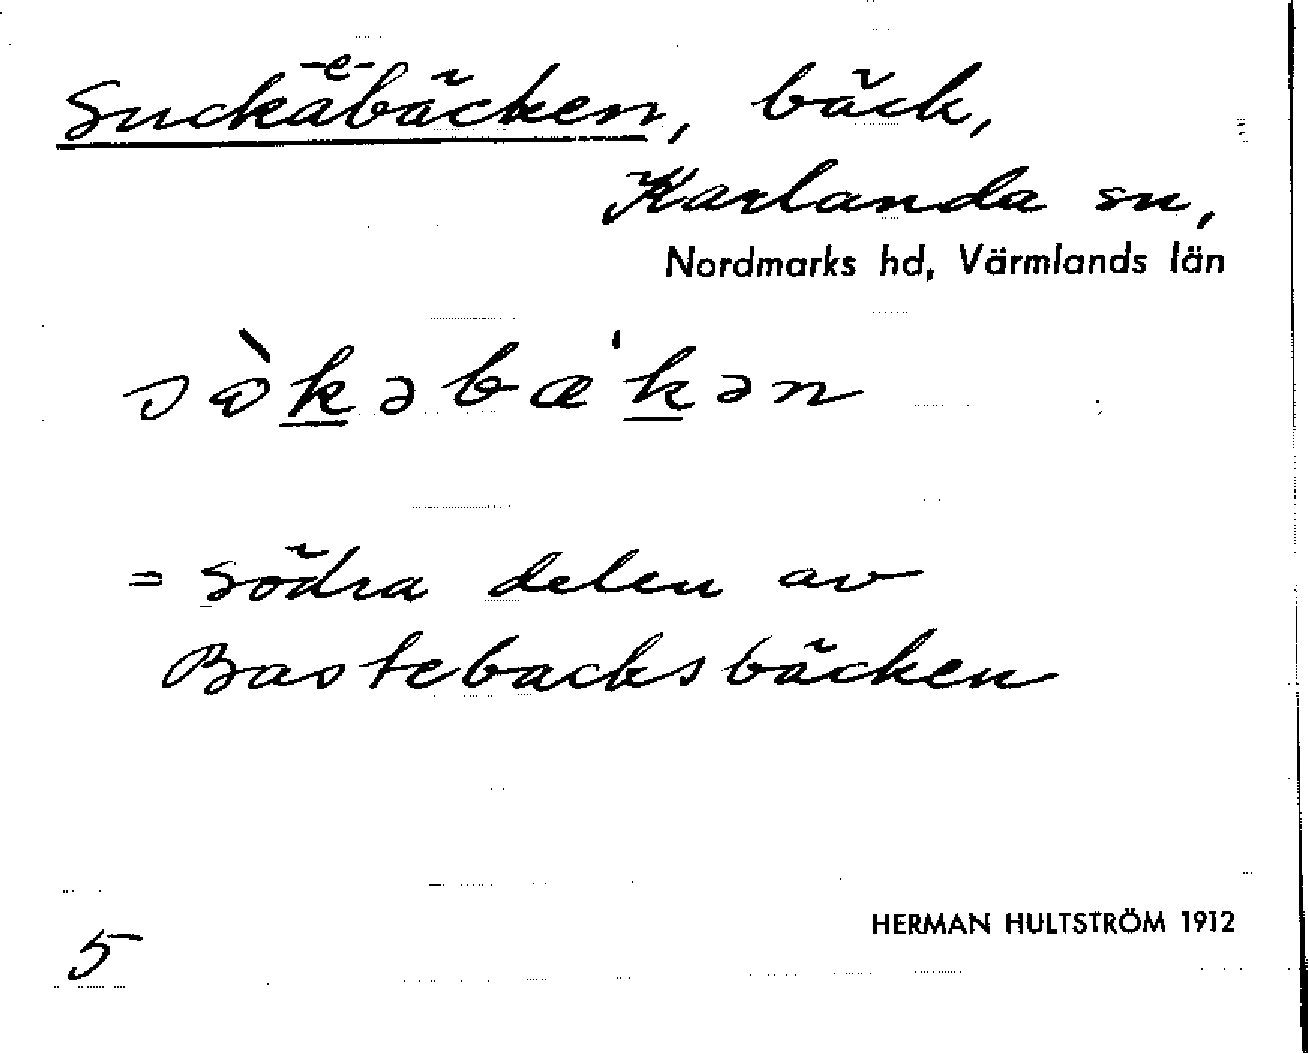 -e-
Suckåbäcken, bäck,
Karlanda sn,
Nordmarks hd, Värmlands län
sòkəbæ'kən
= södra delen av
Bastebacksbäcken
HERMAN HULTSTRÖM 1912
5